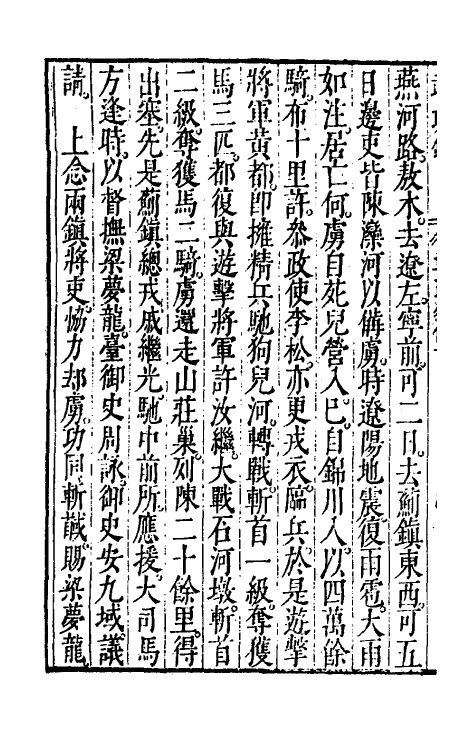 燕河路。敖木。去遼左。寧前。可二日。去薊鎮東西。可五
日。邊吏皆陳灤河以備虜。時遼陽地震。復雨雹。大雨
如注。居亡何。虜自死兒營入。已。自錦川入。以四萬餘
騎。布十里許。叅政使李松。亦更戎衣。臨兵。於是遊擊
將軍黃都。卽擁精兵。馳狗兒河。轉戰。斬首一級。奪獲
馬三匹。都復與遊擊將軍許汝繼。大戰石河墩。斬首
二級。奪獲馬二騎。虜還走山莊巢。列陳二十餘里。得
出塞。先是薊鎮總戎戚繼光。馳中前所。應援。大司馬
方逢時。以督撫梁夢龍。臺御史周詠。御史安九域議
請。　上念兩鎮將吏。恊力却虜。功同斬馘。賜梁夢龍